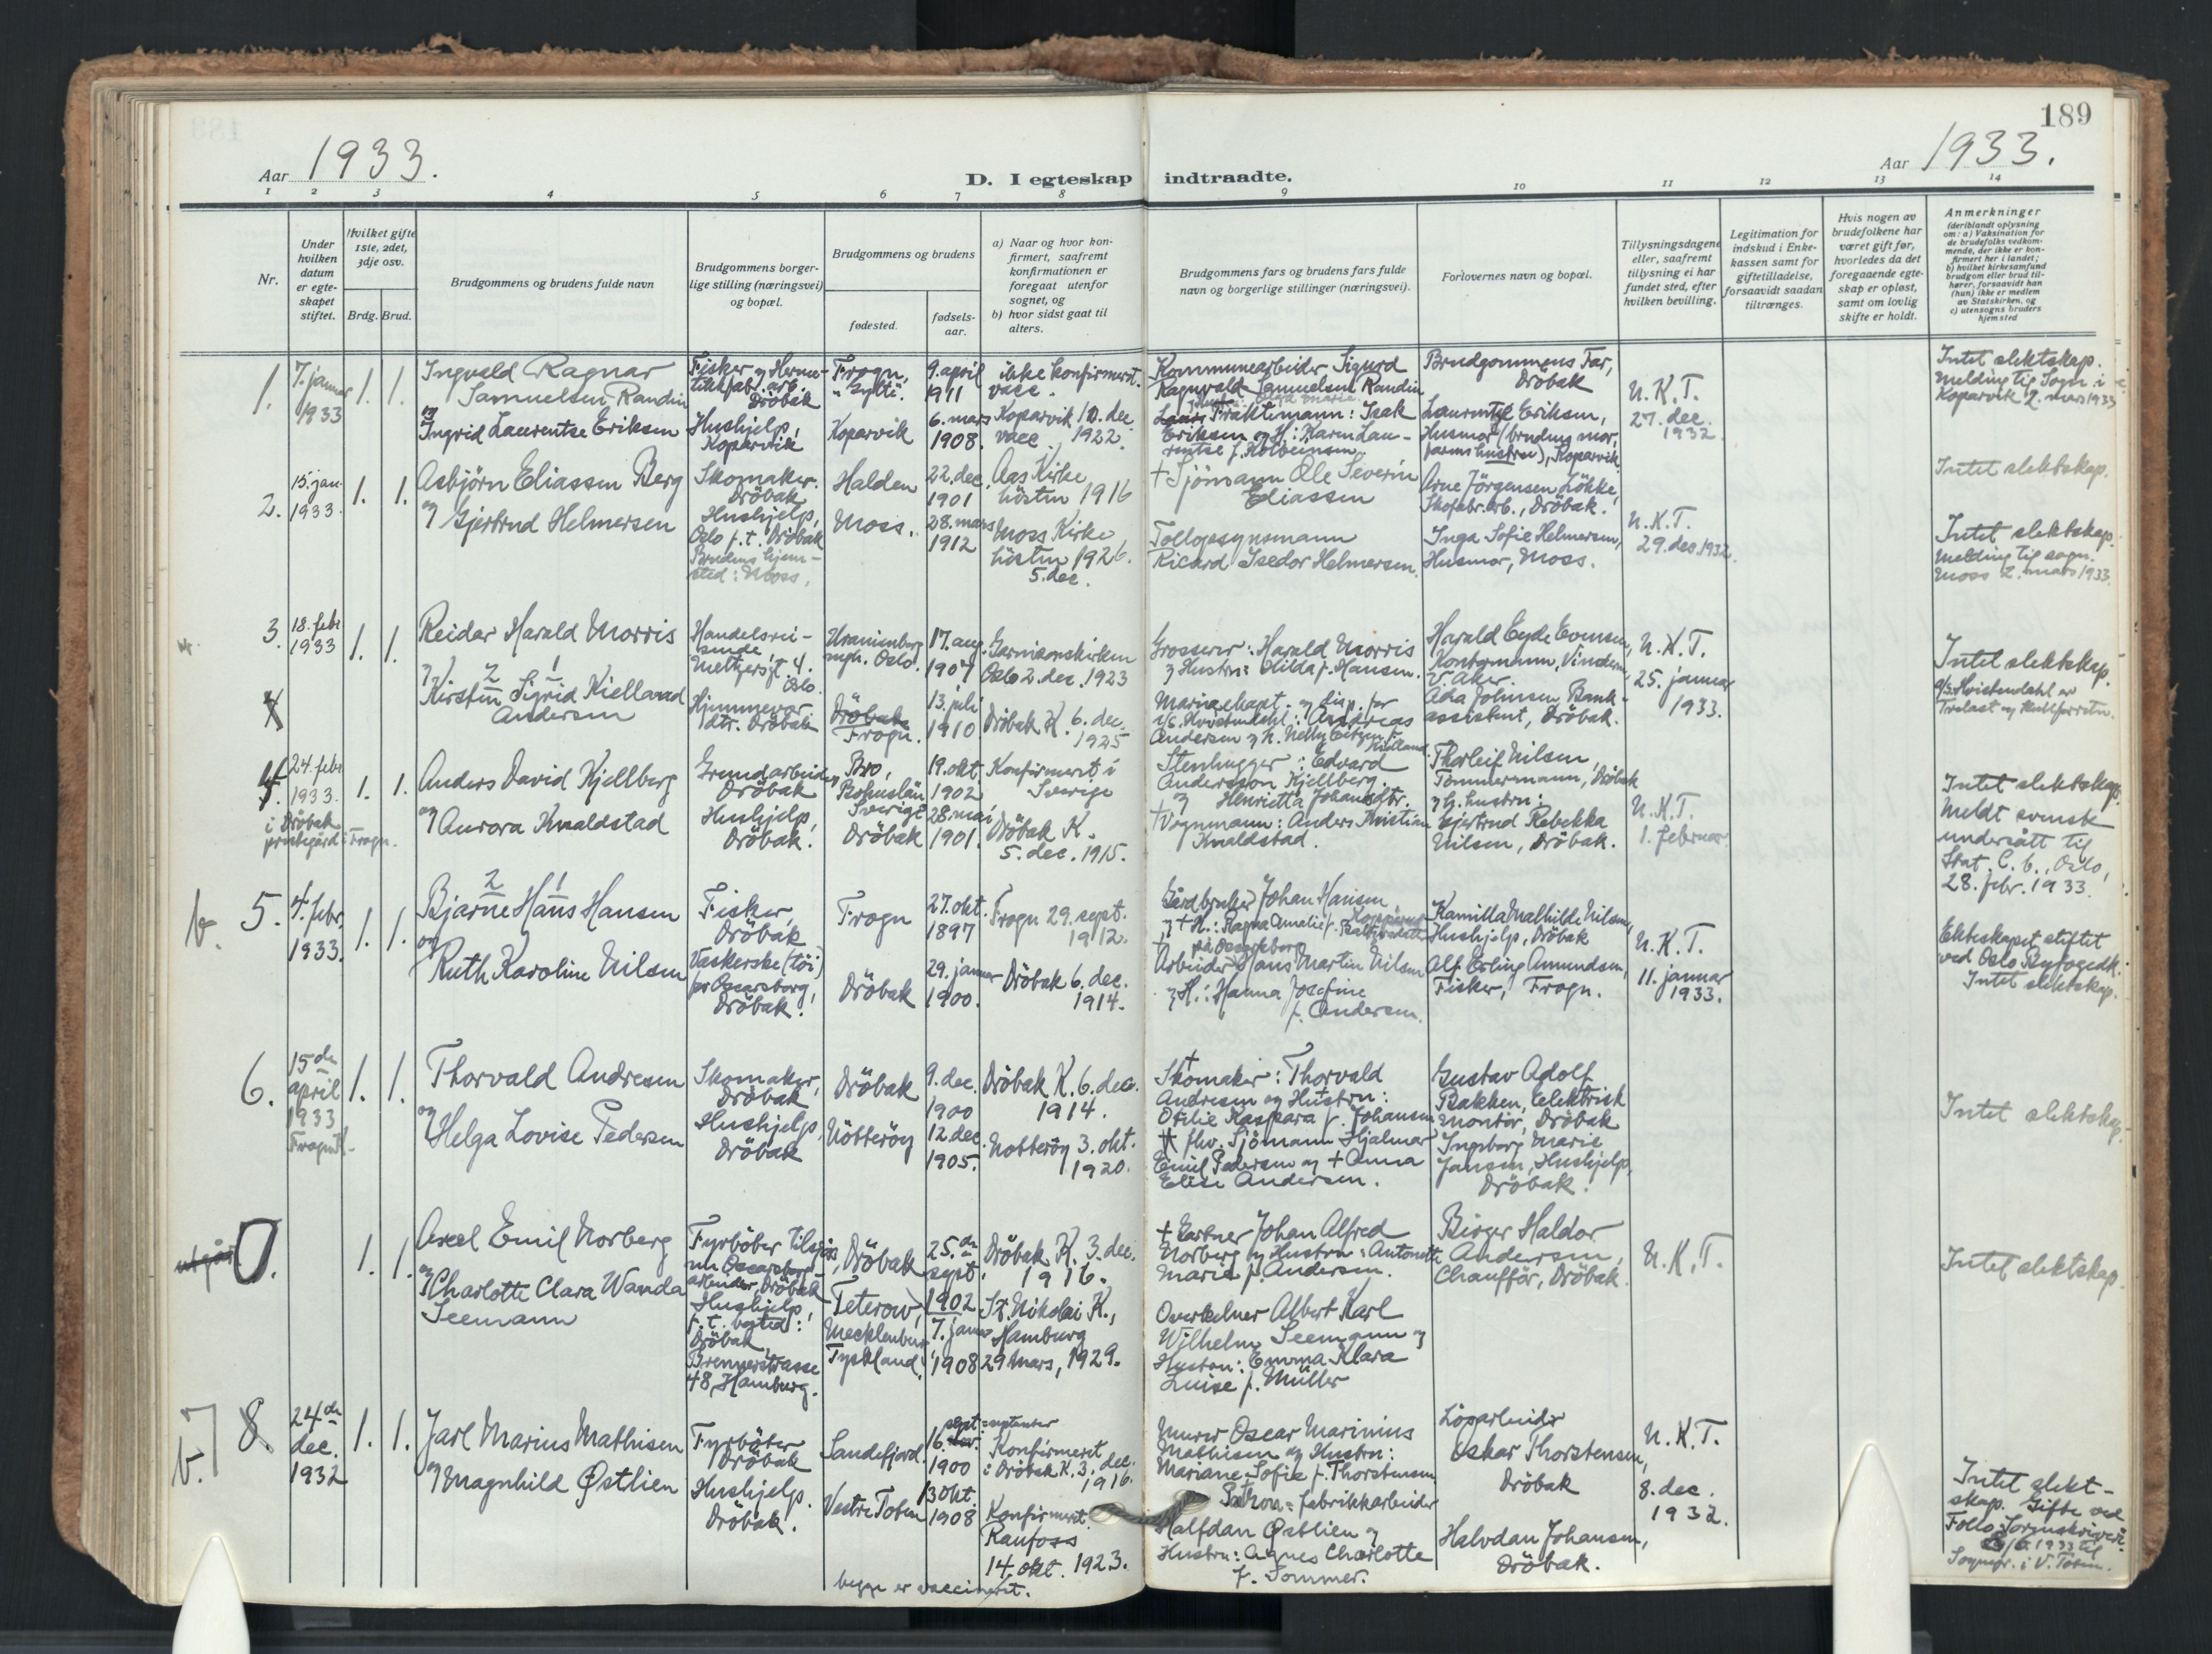 189
Aar 1933.
D. I egteskap indtraadte.
Aar 1933.
1 2 3 4 5 6 7 8 9 10 11 12 13 14
Nr.
Under
hvilken
datum
er egte-
skapet
stiftet.
Hvilket gifte
1ste, 2det,
3dje osv.
Brdg. Brud.
Brudgommens og brudens fulde navn
Brudgommens borger-
lige stilling (næringsvei)
og bopæl.
Brudgommens og brudens
fødested.
fødsels-
aar.
a) Naar og hvor kon-
firmert, saafremt
konfirmationen er
foregaat utenfor
sognet, og
b) hvor sidst gaat til
alters.
Brudgommens fars og brudens fars fulde
navn og borgerlige stillinger (næringsvei).
Forlovernes navn og bopæl.
Tillysningsdagene
eller, saafremt
tillysning ei har
fundet sted, efter
hvilken bevilling.
Legitimation for
indskud i Enke-
kassen samt for
giftetilladelse,
forsaavidt saadan
tiltrænges.
Hvis nogen av
brudefolkene har
været gift før,
hvorledes da det
foregaaende egte-
skap er opløst,
samt om lovlig
skifte er holdt.
Anmerkninger
(deriblandt oplysning
om: a) Vaksination for
de brudefolks vedkom-
mende, der ikke er kon-
firmert her i landet;
b) hvilket kirkesamfund
brudgom eller brud til-
hører, forsaavidt han
(hun) ikke er medlem
av Statskirken, og
c) utensogns bruders
hjemsted
1.
7. januar
1933
1. 1.
Ingvald Ragnar
Samuelsen Randin
og
Ingrid Laurentse Eriksen
Fisker og Herme-
tikkfabr. arb.
Dröbak
Hushjelp,
Kopervik
Frogn,
"Sylte".
Koparvik
9. april
1911
6. mars
1908.
ikke konfirmert.
vacc.
Koparvik 10. dec.
vacc. 1922.
Kommunearbeider Sigurd
Ragnvald Samuelsen Randin
Fraktemann: Isak
Eriksen og H.: Karen Lau-
rentse f. Kolbeinsen.
Brudgommens Far,
Dröbak
Laurentze Eriksen,
Husmor (brudens mor,
farens hustru), Koparvik
U. K. T.
27. dec.
1932.
Intet slektskap.
Melding til Sogn i
Koparvik 2. mars 1933
2.
15. jan.
1933.
1. 1.
Asbjörn Eliassen Berg
og Gjertrud Helmersen
Skomaker.
Dröbak
Hushjelp,
Oslo p.t. Dröbak
Brudens hjem-
sted: Moss.
Halden
Moss.
22. dec.
1901
28. mars
1912
Aas Kirke
hösten 1916
Moss Kirke
hösten 1926.
5. dec.
+ Sjömann Ole Severin
Eliassen
Tollopsynsmann
Ricard Isedor Helmersen.
Arne Jörgensen Lökke,
Skofabr. arb., Dröbak.
Inga Sofie Helmersen,
Husmor, Moss.
U. K. T.
29. des. 1932.
Intet slektskap.
Intet slektskap.
Melding til sogn.
Moss 2. mars 1933.
3.
18. febr.
1933
1. 1.
Reidar Harald Morris
og 2 1
Kirsten Sigrid Kielland
Andersen
Handelsrei-
sende,
Meltzersgt 4.
Oslo.
Hjemmevær.
dtr. Dröbak
Uranienborg
mgh. Oslo.
Dröbak
Frogn.
17. aug.
1907
13. juli
1910
Garnisonskirken
Oslo 2. dec. 1923
Dröbak K. 6. dec.
1925
Grosserer: Harald Morris
og Hustru: Hilda f. Hansen.
Marinekapt. og disp. for
A/S. Hvistendahl: Andreas
Andersen og H. Nelly Eitzen f.
Kielland.
Harald Eyde Evensen,
Kontormann, Vinderen,
V. Aker.
Ada Johnsen, Bank-
assistent, Dröbak.
U. K. T.
25. januar
1933.
Intet slektskap.
A/S. Hvistendahl er
Trelast og Kullforretn.
4.
24. febr.
1933.
i Dröbak
prestegård i Frogn.
1. 1.
Anders David Kjellberg
og Aurora Knaldstad
Grundarbeider,
Dröbak
Hushjelp,
Dröbak.
Bro,
Bohuslän
Sverige
Dröbak
19. okt
1902
28. mai
1901.
Konfirmert i
Sverige
Dröbak K.
5. dec. 1915.
Stenhugger: Edvard
Andersson Kjellberg.
og Henrietta Johansdtr.
+ Vognmann: Anders Kristian
Knaldstad.
Thorleif Nilsen,
Tömmermann, Dröbak
og h. hustru:
Gjertrud Rebekka
Nilsen, Dröbak.
U. K. T.
1. februar
Intet slektskap.
Meldt svenske
undersått til
Stat. C. b., Oslo,
28. febr. 1933.
b. 5.
4. febr.
1933.
1. 1.
2 1
Bjarne Hans Hansen
og
Ruth Karoline Nilsen
Fisker,
Dröbak
Vaskerske (töi)
for Oscarsborg,
Dröbak.
Frogn
Dröbak
27. okt.
1897
29. januar
1900.
Frogn 29. sept.
1912.
Dröbak 6. dec.
1914.
Gårdbruker Johan Hansen
og + H.: Ragna Amalie f.
på Oscarsborg
Arbeider Hans Martin Nilsen
og H.: Hanna Josefine
f. Andersen.
Kamilla Mathilde Nilsen,
Hushjelp, Dröbak
Alf Erling Amundsen,
Fisker, Frogn.
U. K. T.
11. januar
1933.
Ekteskapet stiftet
ved Oslo Byfogedk.
Intet slektskap.
6.
15de
april
1933
1. 1.
Thorvald Andresen
og
Helga Lovise Pedersen
Skomaker,
Dröbak
Hushjelp,
Dröbak
Dröbak
Nötteröy
9. dec.
1900
12. dec.
1905.
Dröbak K. 6. dec.
1914.
Nötteröy 3. okt.
1920.
+
Skomaker: Thorvald
Andresen og Hustru:
Otilie Kaspara f. Johansen
fhv. Sjömann Hjalmar
Emil Pedersen og + Anna
Elise Andersen.
Gustav Adolf
Bakken, Elektrisk
Montör, Dröbak
Ingeborg Marie
Jansen, Hushjelp,
Dröbak.
Intet slektskap.
utgår 0.
1. 1.
Axel Emil Norberg
og
Charlotte Clara Wanda
Seemann
Fyrböter tilsjös,
arbeider, Dröbak
Hushjelp,
p.t. bosted:
Dröbak,
Brennerstrasse
48, Hamburg.
Dröbak
Teterow,
Mecklenburg
Tyskland.
25. de
sept.
1902
7. januar
1908
Dröbak K. 3. dec.
1916.
St. Nikolai K.,
Hamburg
29 Mars, 1929.
+ Gartner Johan Alfred
Norberg og Hustru: Antonette
Marie f. Andersen.
Overkelner Albert Karl
Wilhelm Seemann og
Hustru: Emma Klara
Luise f. Müller
Birger Haldor
Andersen,
Chaufför, Dröbak.
U. K. T.
Intet slektskap.
b. 7 8.
24de
dec.
1932
1. 1.
Jarl Marius Mathisen
og Magnhild Østlien
Fyrböter
Dröbak
Hushjelp.
Dröbak.
Sandefjord.
Vestre Toten
sept. = september
16.
1900
13 okt.
1908
Konfirmeret
i Dröbak K. 3. dec.
1916.
Konfirmeret.
Raufoss
14. okt. 1923.
begge er vaccineret.
Murer Oscar Marinius
Mathisen og Hustru:
Mariane Sofie f. Thorstensen
Patron = fabrikkarbeider
Halfdan Østlien og
Hustru: Agnes Charlotte
f. Sommer.
Lösarbeider
Oskar Thorstensen,
Dröbak
Halvdan Johansen,
Dröbak.
U. K. T.
8. dec.
1932.
Intet slekt-
skap. Gifte ved
Follo Sorenskriveri.
1933 til
Sognepr. i V. Toten.